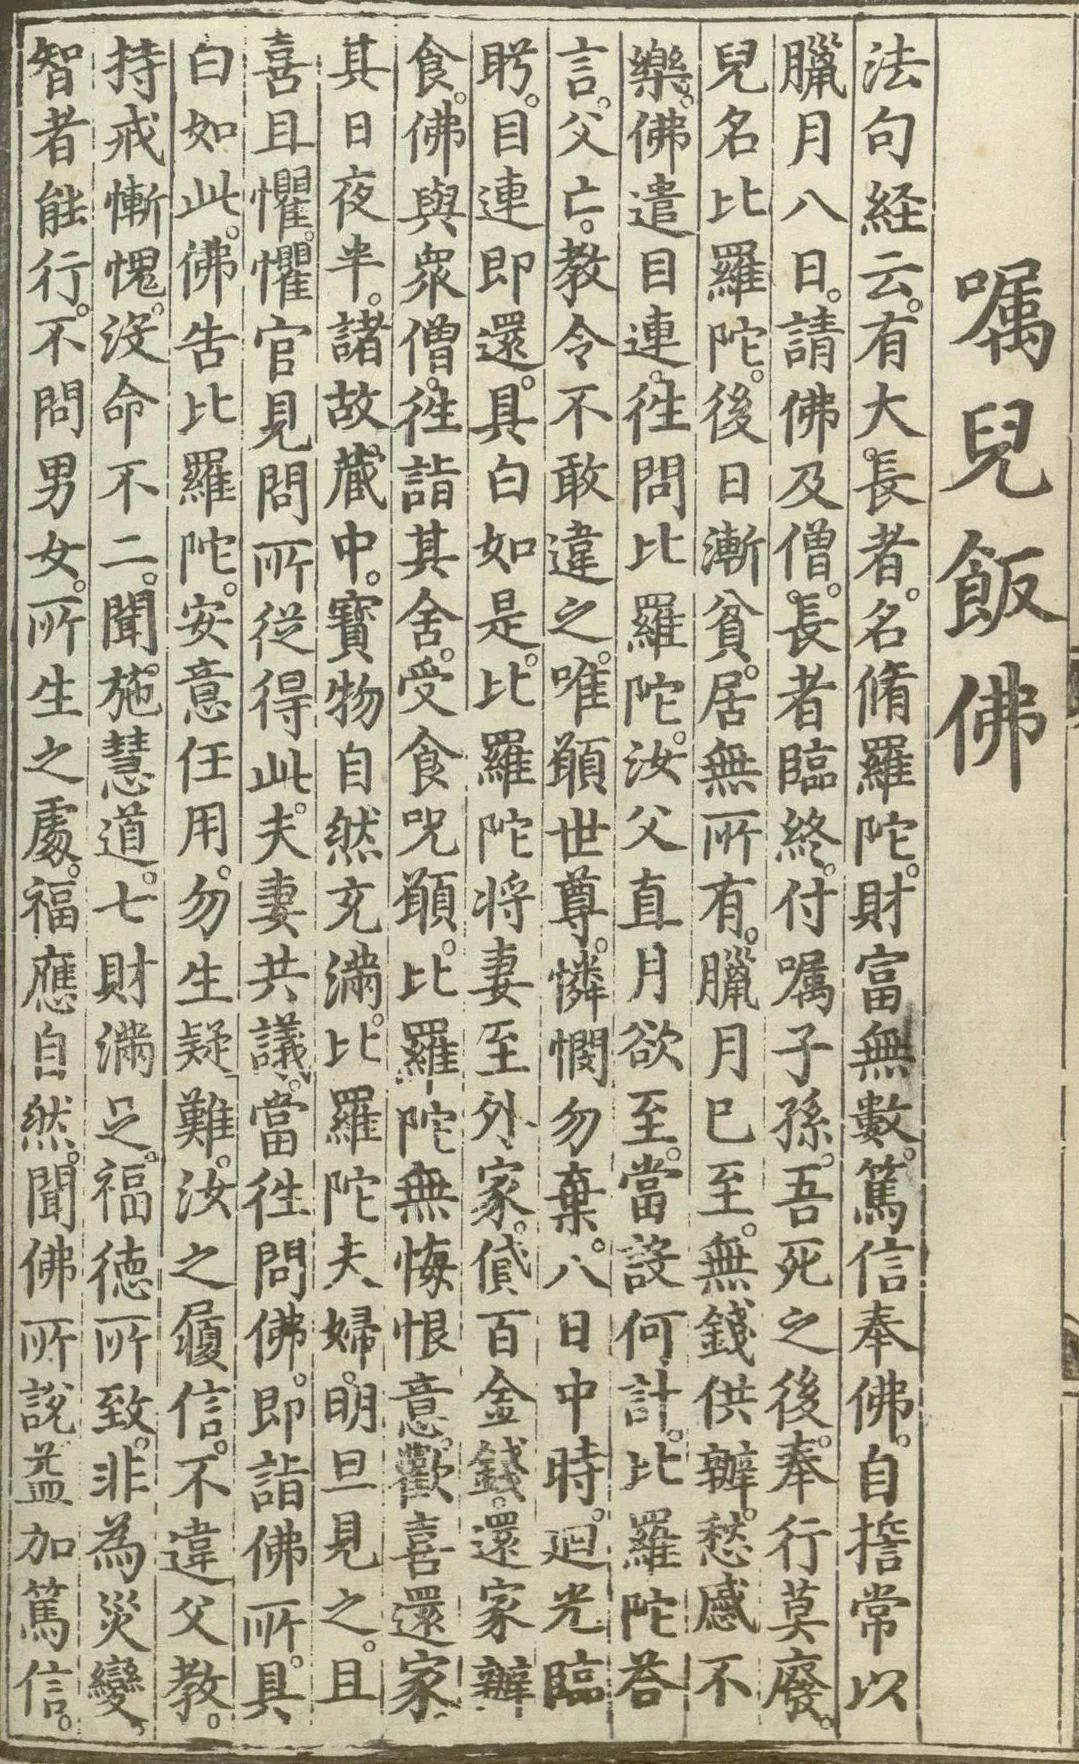 嘱兒飯佛
法句経云。有大長者。名脩羅陀。財富無數。篤信奉佛。自擔常以
臘月八日。請佛及僧。長者臨終。付嘱子孫。吾死之後。奉行莫廢。
兒名比羅陀。後日漸貧。居無所有。臘月已至。無錢供辦。愁慼不
樂。佛遣目連。徃問比羅陀。汝父直月欲至。當設何計。比羅陀荅
言。父亡。教令不敢違之。唯願世尊。憐憫勿棄。八日中時。廻光臨
眄。目連即還。具白如是。比羅陀将妻至外家。貸百金錢。還家辦
食。佛與衆僧。徃詣其舍。受食呪願。比羅陀無悔恨意。歡喜還家
其日夜半。諸故藏中。寳物自然充滿。比羅陀夫婦。明旦見之。且
喜且懼。懼官見問所從得此。夫妻共議。當徃問佛。即詣佛所。具
白如此。佛告比羅陀。安意任用。勿生疑難。汝之履信。不違父教。
持戒慚愧。沒命不二。聞施慧道。七財滿足。福徳所致。非為災變。
智者能行。不問男女。所生之處。福應自然。聞佛所説。益加篤信。